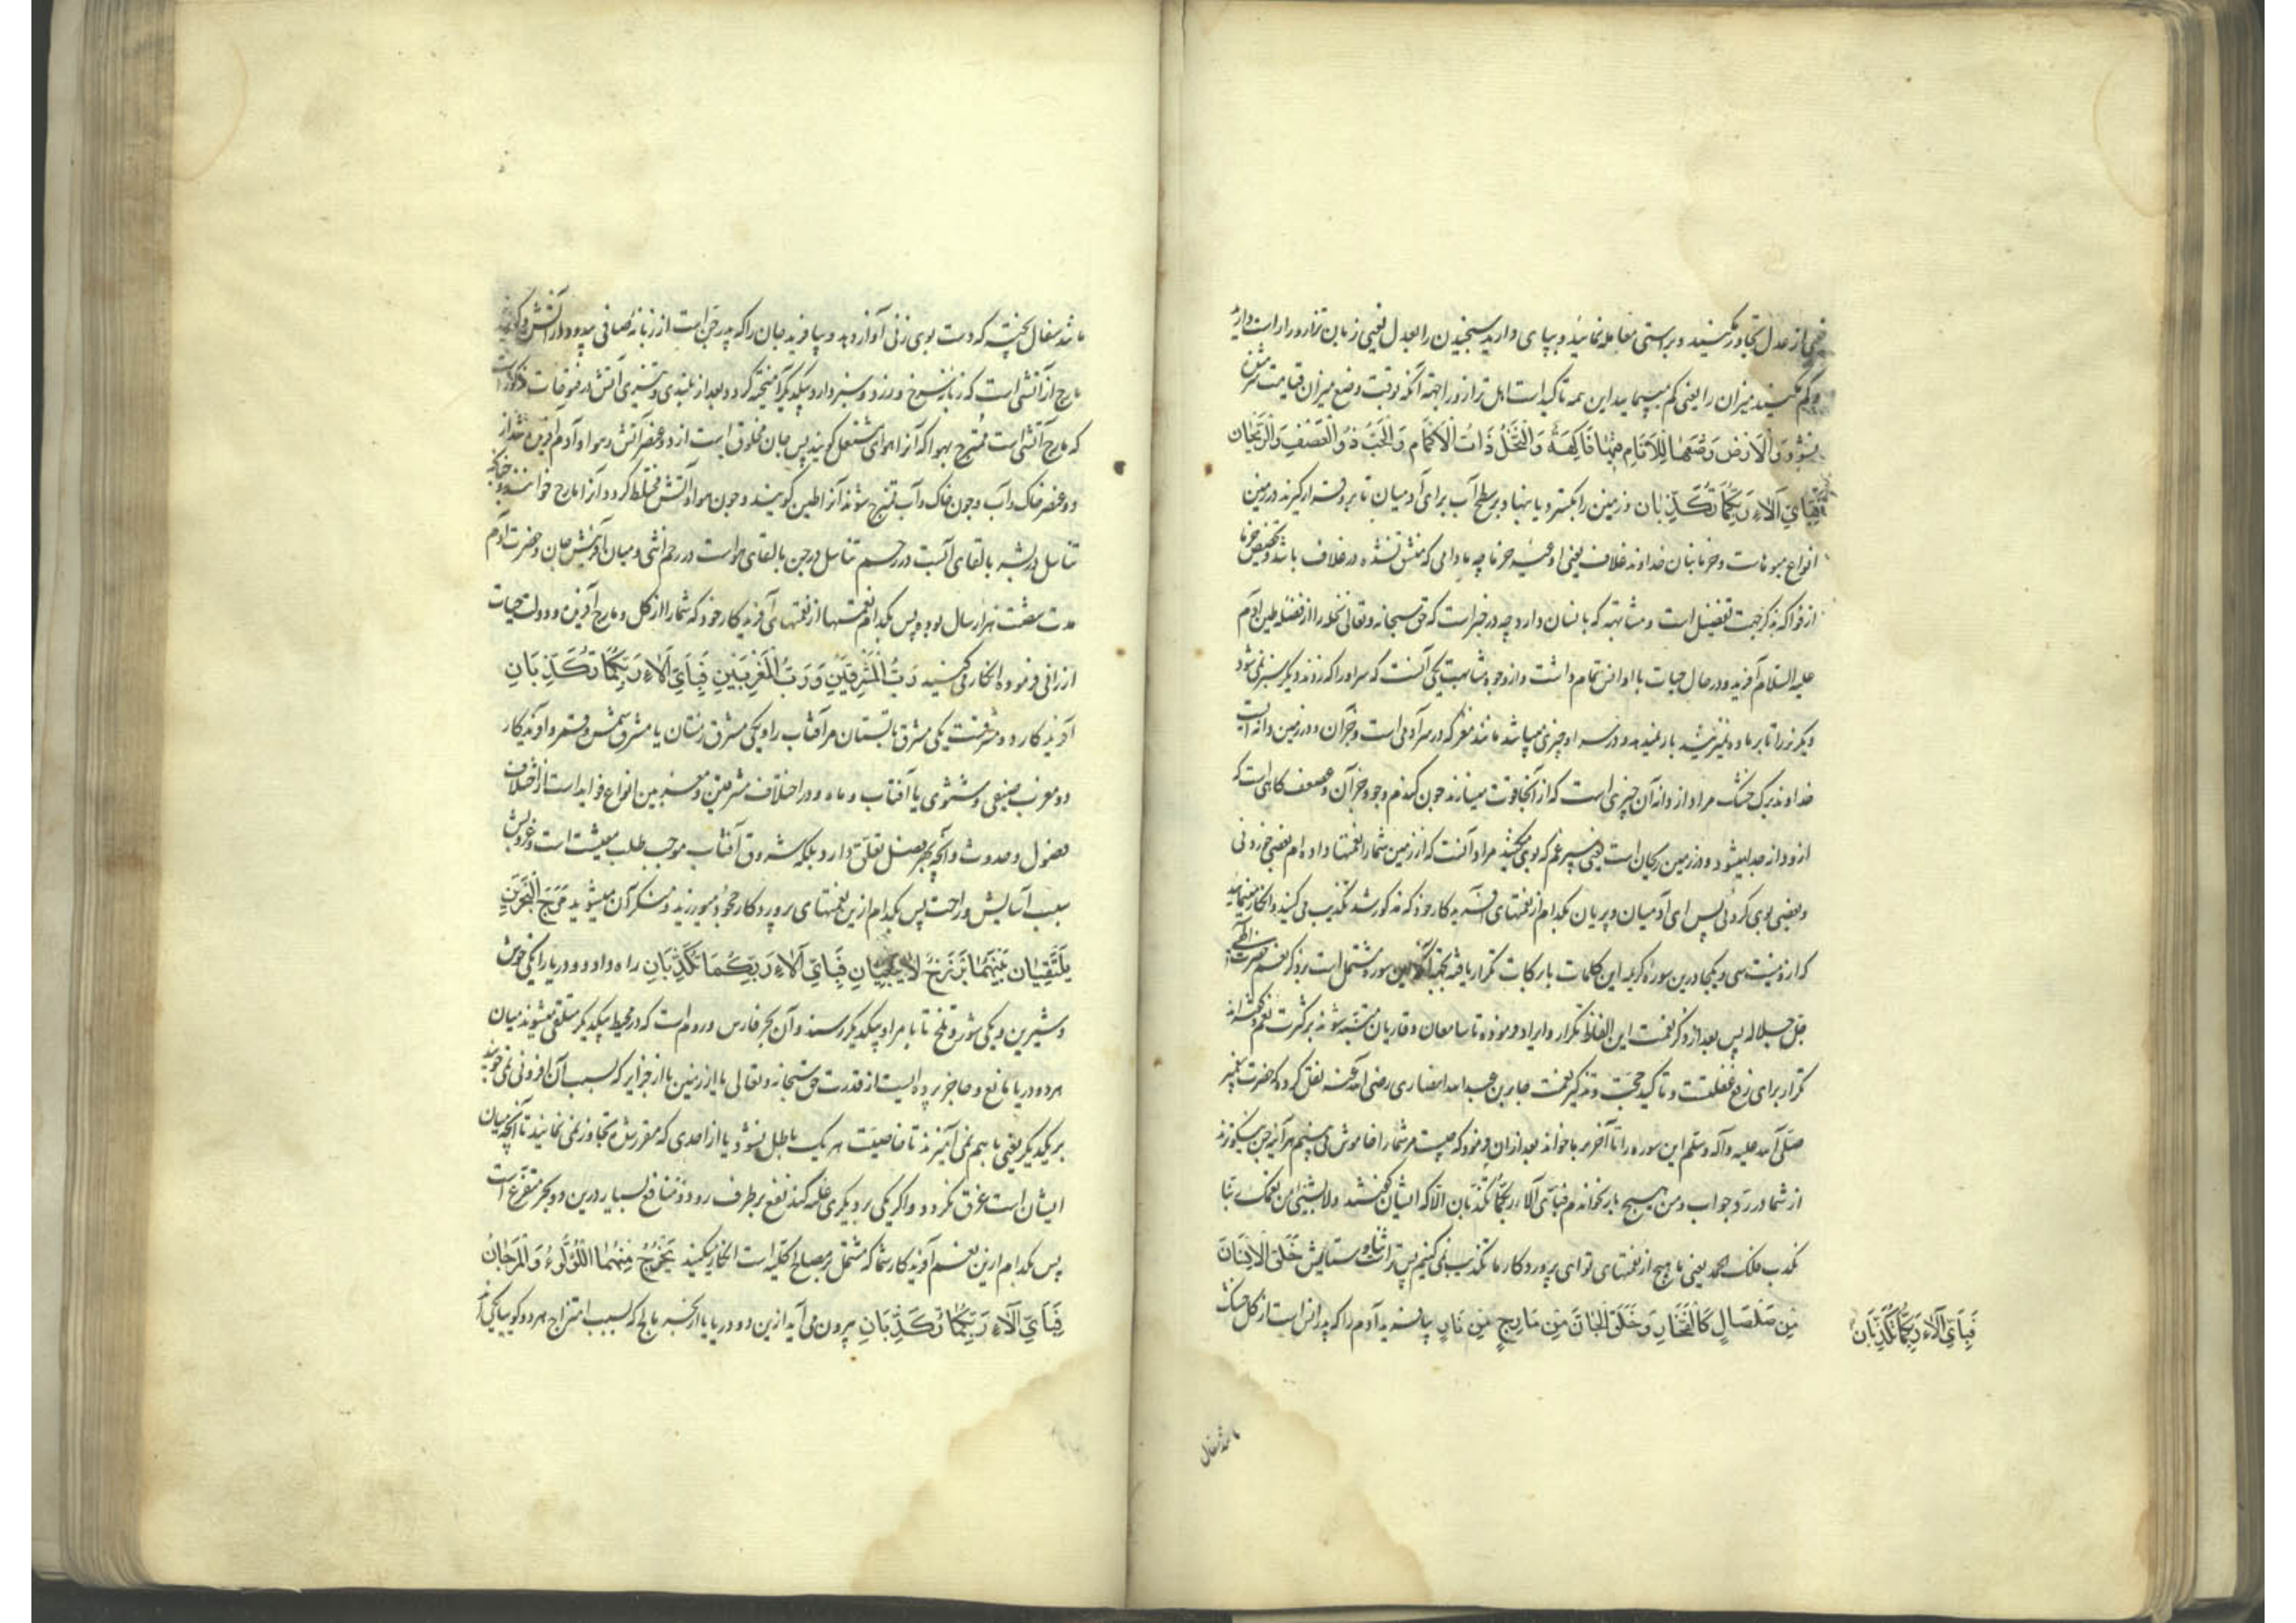 یعنی از عدل تجاوز مکنید و براستی معامله نمائید و بپای دارید سنجیدن را بعدل یعنی زبان ترازو را راست دارید
و کم مکنید میزان را یعنی کم مپیمایید این همه تاکید است اهل ترازو را جهة آنکه بوقت وضع میزان قیامت
نشوند وَالْاَرْضَ وَضَعَهَا لِلْاَنَامِ فِيهَا فَاكِهَةٌ وَالنَّخْلُ ذَاتُ الْاَكْمَامِ وَالْحَبُّ ذُو الْعَصْفِ وَالرَّيْحَانُ
فَبِاَيِّ آلَاءِ رَبِّكُمَا تُكَذِّبَانِ و زمین را بگسترد یا بنهاد بر سطح آب برای آدمیان تا برو قرار گیرند در زمین
انواع میوهات و خرمابنان خداوند غلاف یعنی اوعیه خرما چه مادامی که منشق نشده در غلاف باشد و تخصیص خرما
از فواکه بذکر جهت تفضیل است و مشابهته که بانسان دارد چه در خبر است که حق سبحانه و تعالی نخله را از فضله طین آدم
علیه السلام آفرید و در حال حیات با او انس تمام داشت و از وجوه مشابهت یکی آنست که سر او را که زنند دیگر سبز نمی شود
دیگر نر را تا بر ماده نمیرسد بار نمیدهد و در سر او چیزی میباشد مانند مغز که در سر آدمی است و جز آن و در زمین دانه ایست
خداوند برک خشک مراد از دانه آن چیزی است که از آنجا قوت میسازند چون کندم و جو و جز آن و عصف کاهی است که
از و دانه جدا میشود و در زمین ریحان است یعنی سپرغم که بوی میکشید مراد آنست که از زمین شما را نعمتها داده ام بعضی خوردنی
و بعضی بوی کردنی پس ای آدمیان و پریان بکدام از نعمتهای آفریدکار خود که مذکور شد تکذیب می کنید و انکار مینمایید
که از دویست سی و یکجا درین سوره کریمه این کلمات با برکات تکرار یافته بجهة آنکه این سوره مشتمل است بر ذکر نعم حضرت
جل جلاله پس بعد از ذکر نعمت این الفاظ تکرار و ایراد فرموده تا سامعان و قاریان متنبه شوند بر کثرت نعم و گفته اند
تکرار برای رفع غفلتست و تاکید حجت و تذکیر نعمت جابر بن عبد الله انصاری رضی الله عنه نقل کرده که حضرت پیغمبر
صلی الله علیه و آله و سلم این سوره را تا آخر بر ما خواند بعد از ان فرمود که چیست مر شما را خاموش می بینم هر آینه جن نیکوترند
از شما در رد جواب و من هیچ بار نخواندم فبای آلاء ربکما تکذبان الا که ایشان گفتند ولا بشیء من نعمک ربنا
نکذب فلک الحمد یعنی ما هیچ از نعمتهای تو ای پروردکار ما تکذیب نمی کنیم پس تراست ثنا و ستایش خَلَقَ الْاِنْسَانَ
مِنْ صَلْصَالٍ كَالْفَخَّارِ وَخَلَقَ الْجَانَّ مِنْ مَارِجٍ مِنْ نَارٍ بیافرید آدم را که پدر انس است از کل خشک
فَبِاَيِّ آلَاءِ رَبِّكُمَا تُكَذِّبَانِ
مانند سفال
مانند سفال پخته که دست بروی زنی آواز دهد و بیافرید جان را که پدر جن است از زبانه صافی بی دود از آتش و کویند
مارج از آتشی است که زبانه سرخ و زرد و سبز دارد بیکدیگر آمیخته کردد بعد از بلندی و تیزی آتش در فتوحات مذکور است
که مارج آتشی است ممتزج بهوا که آنرا هوای مشتعل کویند پس جان مخلوق است از دو عنصر آتش و هوا و آدم آفریده شد از
دو عنصر خاک و آب و چون خاک و آب ممتزج شوند آنرا طین کویند و چون هوا و آتش مختلط کردد آنرا مارج خوانند و چنانکه
تناسل در بشر بالقای آبست در رحم تناسل در جن بالقای هواست در رحم انثی و میان آفرینش جان و حضرت آدم
مدت شصت هزار سال بود پس بکدام نعمتها از نعمتهای آفریدکار خود که شما را از کل و مارج آفریده و دولت حیات
ارزانی فرموده انکار می کنید رَبُّ الْمَشْرِقَيْنِ وَرَبُّ الْمَغْرِبَيْنِ فَبِاَيِّ آلَاءِ رَبِّكُمَا تُكَذِّبَانِ
آفریدکار دو مشرقست یکی مشرق تابستان مر آفتاب را و یکی مشرق زمستان یا مشرق شمس و قمر و آفریدکار
دو مغرب صیفی و شتوی یا آفتاب و ماه و در اختلاف مشرقین و مغربین انواع فواید است از اختلاف
فصول و حدوث و آنچه بهر فصل تعلق دارد بلکه شروق آفتاب موجب طلب معیشت است و غروبش
سبب آسایش و راحت پس بکدام ازین نعمتهای پروردکار جحود میورزید و منکر آن میشوید مَرَجَ الْبَحْرَيْنِ
يَلْتَقِيَانِ بَيْنَهُمَا بَرْزَخٌ لَا يَبْغِيَانِ فَبِاَيِّ آلَاءِ رَبِّكُمَا تُكَذِّبَانِ راه داد دو دریا را یکی خوش
و شیرین و یکی شور و تلخ تا با مراد بیکدیگر رسند و آن بحر فارس و روم است که در محیط بیکدیگر متلقی میشوند میان
هر دو دریا مانع و حاجز پرده ایست از قدرت حق سبحانه و تعالی یا از زمین یا از جزایر که بسبب آن افزونی نمی جویند
بر یکدیگر یعنی با هم نمی آمیزند تا خاصیت هر یک باطل نشود یا از احدی که مقرر شده تجاوز نمی نمایند تا آنچه میان
ایشان است غرق نکردد و اگر یکی بر دیگری غلبه کند نفع بر طرف رود و منافع بسیار درین دو بحر متفرع است
پس بکدام ازین نعم آفریدکار شما که مشتمل بر مصالح کلیه است انکار میکنید يَخْرُجُ مِنْهُمَا اللُّؤْلُؤُ وَالْمَرْجَانُ
فَبِاَيِّ آلَاءِ رَبِّكُمَا تُكَذِّبَانِ بیرون می آید ازین دو دریا یا از بحر مالح که بسبب امتزاج هر دو کوییا یکی اند